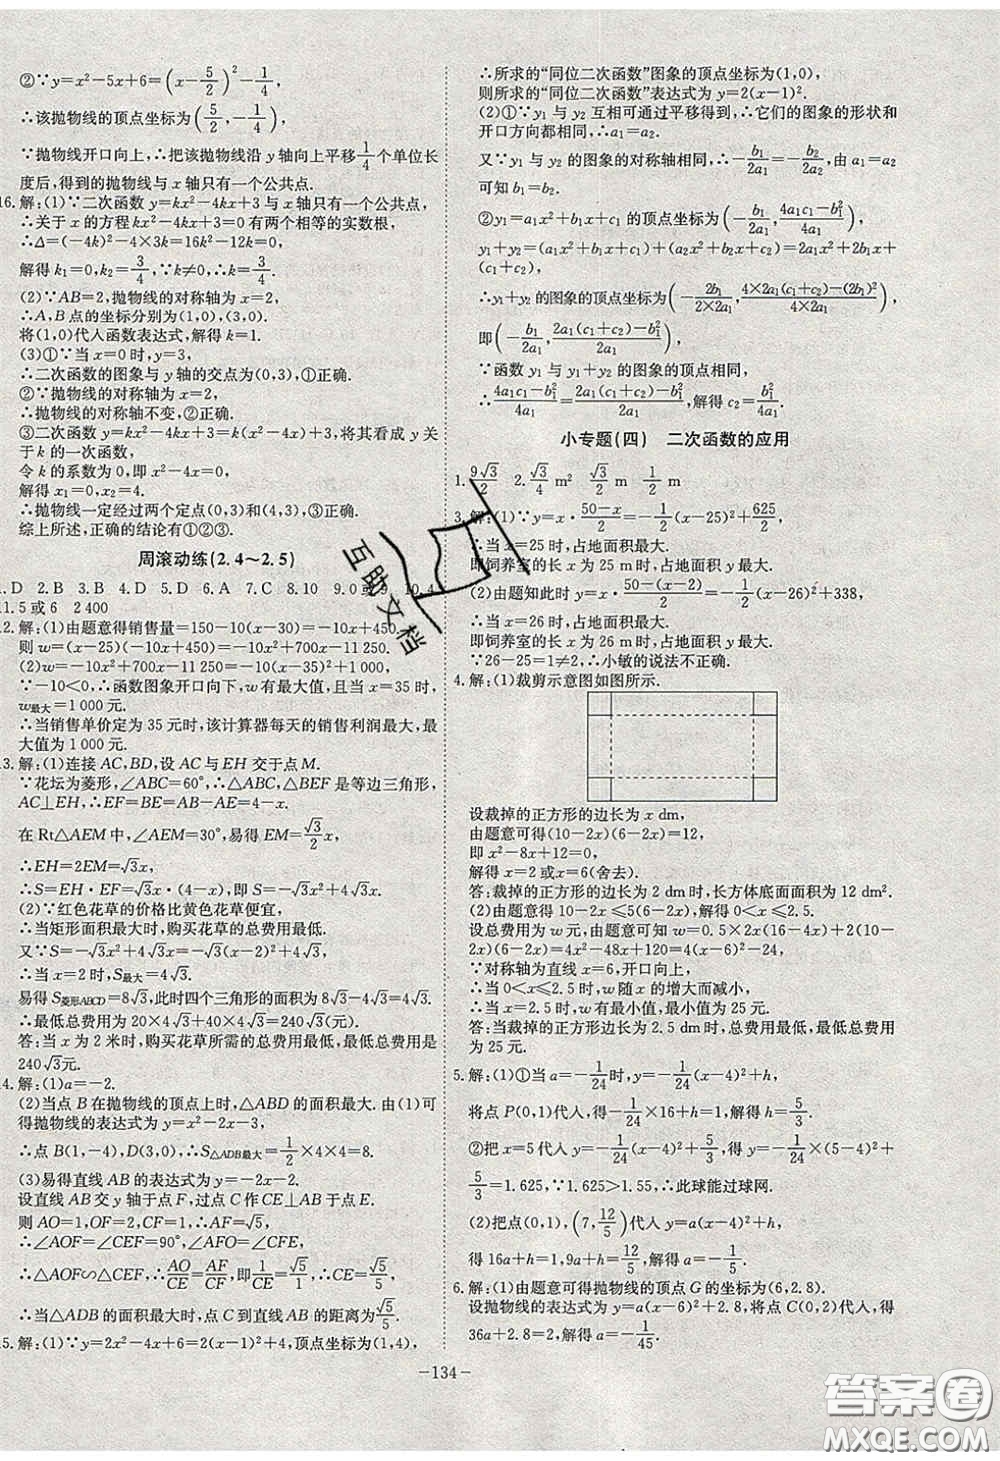 ②∵y=x²-5x+6=(x-5/2)²-1/4,
∴该抛物线的顶点坐标为(5/2,-1/4),
∵抛物线开口向上,∴把该抛物线沿 y 轴向上平移1/4个单位长
度后,得到的抛物线与 x 轴只有一个公共点.
16.解:(1)∵二次函数 y=kx²-4kx+3 与 x 轴只有一个公共点,
∴关于 x 的方程 kx²-4kx+3=0 有两个相等的实数根,
∴Δ=(-4k)²-4×3k=16k²-12k=0,
解得 k₁=0,k₂=3/4,∵k≠0,∴k=3/4.
(2)∵AB=2,抛物线的对称轴为 x=2,
∴A,B点的坐标分别为(1,0),(3,0).
将(1,0)代入函数表达式,解得 k=1.
(3)①∵当 x=0时,y=3,
∴二次函数的图象与 y 轴的交点为(0,3),①正确.
②∵抛物线的对称轴为 x=2,
∴抛物线的对称轴不变,②正确.
③二次函数 y=kx²-4kx+3=k(x²-4x)+3,将其看成 y 关
于 k 的一次函数,
令 k 的系数为 0,即 x²-4x=0,
解得 x₁=0,x₂=4.
∴抛物线一定经过两个定点(0,3)和(4,3),③正确.
综上所述,正确的结论有①②③.
周滚动练(2.4～2.5)
1.D 2.B 3.B 4.D 5.D 6.A 7.C 8.10 9.0或9 10.4
11.5 或 6 2 400
12.解:(1)由题意得销售量=150-10(x-30)=-10x+450,
则 w=(x-25)(-10x+450)=-10x²+700x-11 250.
(2)w=-10x²+700x-11 250=-10(x-35)²+1 000.
∵-10<0,∴函数图象开口向下,w 有最大值,且当 x=35 时,
w最大=1 000 元.
∴当销售单价定为 35 元时,该计算器每天的销售利润最大,最
大值为 1 000 元.
13.解:(1)连接 AC,BD,设 AC 与 EH 交于点 M.
∵花坛为菱形,∠ABC=60°,∴△ABC,△BEF 是等边三角形,
AC⊥EH,∴EF=BE=AB-AE=4-x.
在 Rt△AEM 中,∠AEM=30°,易得 EM=√3/2x,
∴EH=2EM=√3x,
∴S=EH·EF=√3x·(4-x),即 S=-√3x²+4√3x.
(2)∵红色花草的价格比黄色花草便宜,
∴当矩形面积最大时,购买花草的总费用最低.
又∵S=-√3x²+4√3x=-√3(x-2)²+4√3,
∴当 x=2 时,S最大=4√3.
易得 S菱形ABCD=8√3,此时四个三角形的面积为 8√3-4√3=4√3.
∴最低总费用为 20×4√3+40×4√3=240√3(元).
答:当 x 为 2 米时,购买花草所需的总费用最低,最低费用是
240√3元.
14.解:(1)a=-2.
(2)当点 B 在抛物线的顶点上时,△ABD 的面积最大.由(1)可
得抛物线的表达式为 y=x²-2x-3,
∴点 B(1,-4),D(3,0),∴S△ADB最大=1/2×4×4=8.
(3)易得直线 AB 的表达式为 y=-2x-2.
设直线 AB 交 y 轴于点 F,过点 C 作 CE⊥AB 于点 E.
则 AO=1,OF=2,CF=1,∴AF=√5,
∴∠AOF=∠CEF=90°,∠AFO=∠CFE,
∴△AOF∽△CEF,∴AO/CE=AF/CF,即1/CE=√5/1,∴CE=√5/5,
∴当△ADB 的面积最大时,点 C 到直线 AB 的距离为√5/5.
15.解:(1)∵y=2x²-4x+6=2(x-1)²+4,顶点坐标为(1,4),
∴所求的“同位二次函数”图象的顶点坐标为(1,0),
则所求的“同位二次函数”表达式为 y=2(x-1)².
(2)①∵y₁ 与 y₂ 互相可通过平移得到,∴它们的图象的形状和
开口方向都相同,∴a₁=a₂.
又∵y₁ 与 y₂ 的图象的对称轴相同,∴-b₁/2a₁=-b₂/2a₂,由 a₁=a₂
可知 b₁=b₂.
②y₁=a₁x²+b₁x+c₁ 的顶点坐标为(-b₁/2a₁,4a₁c₁-b₁²/4a₁),
y₁+y₂=(a₁x²+b₁x+c₁)+(a₂x²+b₂x+c₂)=2a₁x²+2b₁x+
(c₁+c₂),
∴y₁+y₂ 的图象的顶点坐标为(-2b₁/2×2a₁,4×2a₁(c₁+c₂)-(2b₁)²/4×2a₁),
即(-b₁/2a₁,2a₁(c₁+c₂)-b₁²/2a₁),
∵函数 y₁ 与 y₁+y₂ 的图象的顶点相同,
∴4a₁c₁-b₁²/4a₁=2a₁(c₁+c₂)-b₁²/2a₁,解得 c₂=b₁²/4a₁.
小专题(四) 二次函数的应用
1.9√3/2 2.√3/4 m² √3/2 m 1/2 m
3.解:(1)∵y=x·50-x/2=-1/2(x-25)²+625/2,
∴当 x=25 时,占地面积最大.
即饲养室的长 x 为 25 m 时,占地面积最大.
(2)由题可知此时 y=x·50-(x-2)/2=-1/2(x-26)²+338,
∴当 x=26 时,占地面积最大.
即饲养室的长 x 为 26 m 时,占地面积最大.
∵26-25=1≠2,∴小敏的说法不正确.
4.解:(1)裁剪示意图如图所示.
设裁掉的正方形的边长为 x dm,
由题意可得(10-2x)(6-2x)=12,
即 x²-8x+12=0,
解得 x=2或 x=6(舍去).
答:裁掉的正方形的边长为 2 dm时,长方体底面面积为 12 dm².
(2)由题意得 10-2x≤5(6-2x),解得 0<x≤2.5.
设总费用为 w元,由题意可知 w=0.5×2x(16-4x)+2(10-
2x)(6-2x)=4x²-48x+120=4(x-6)²-24,
∵对称轴为直线 x=6,开口向上,
∴当 0<x≤2.5 时,w 随 x 的增大而减小,
∴当 x=2.5 时,w 有最小值,最小值为 25.
答:当裁掉的正方形的边长为 2.5 dm时,总费用最低,最低费用
为 25 元.
5.解:(1)①当 a=-1/24时,y=-1/24(x-4)²+h,
将点 P(0,1)代入,得-1/24×16+h=1,解得 h=5/3.
②把 x=5代入 y=-1/24(x-4)²+5/3,得 y=-1/24×(5-4)²+
5/3=1.625,∵1.625>1.55,∴此球能过球网.
(2)把点(0,1),(7,12/5)代入 y=a(x-4)²+h,
得 16a+h=1,9a+h=12/5,解得 a=-1/5.
6.解:(1)由题意可得抛物线的顶点 G 的坐标为(6,2.8).
设抛物线的表达式为 y=a(x-6)²+2.8,将点 C(0,2)代入,得
36a+2.8=2,解得 a=-1/45.
-134-
互助文档
答案圈
MXQE.COM